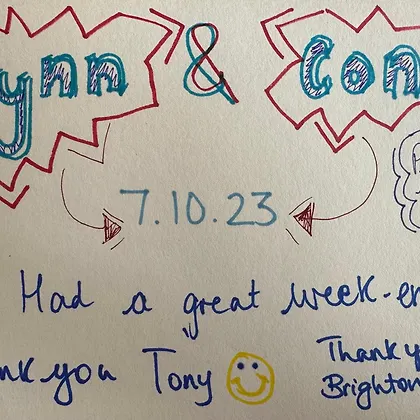 ynn & Con
7.10.23
Had a great week-en
nk you Tony
Thank y
Brighton